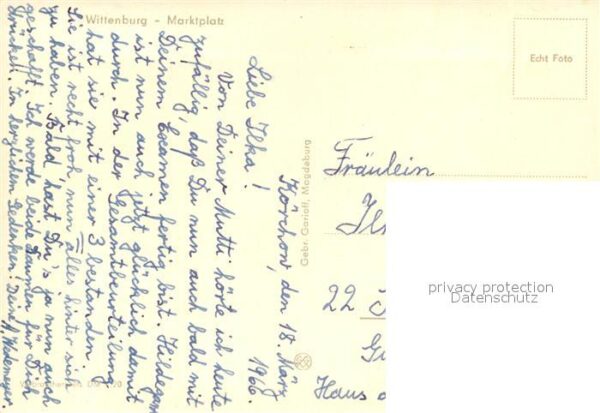 Wittenburg - Marktplatz
Echt Foto
Körchow, den 18. März 1966.
Liebe Ilka!
Von Deiner Mutti hörte ich heute
zufällig, daß Du nun auch bald mit
Deinem Examen fertig bist. Hildegard
ist nun auch jetzt glücklich damit
durch. In der Gesamtbeurteilung
hat sie mit einer 3 bestanden.
Sie ist recht froh, nun alles hinter sich
zu haben. Bald hast Du's ja nun auch
geschafft. Ich werde beide Daumen für Dich
drücken. In herzlichem Gedenken Deine
Wedemeyer
Gebr. Garloff, Magdeburg
Fräulein
22
Haus
privacy protection
Datenschutz